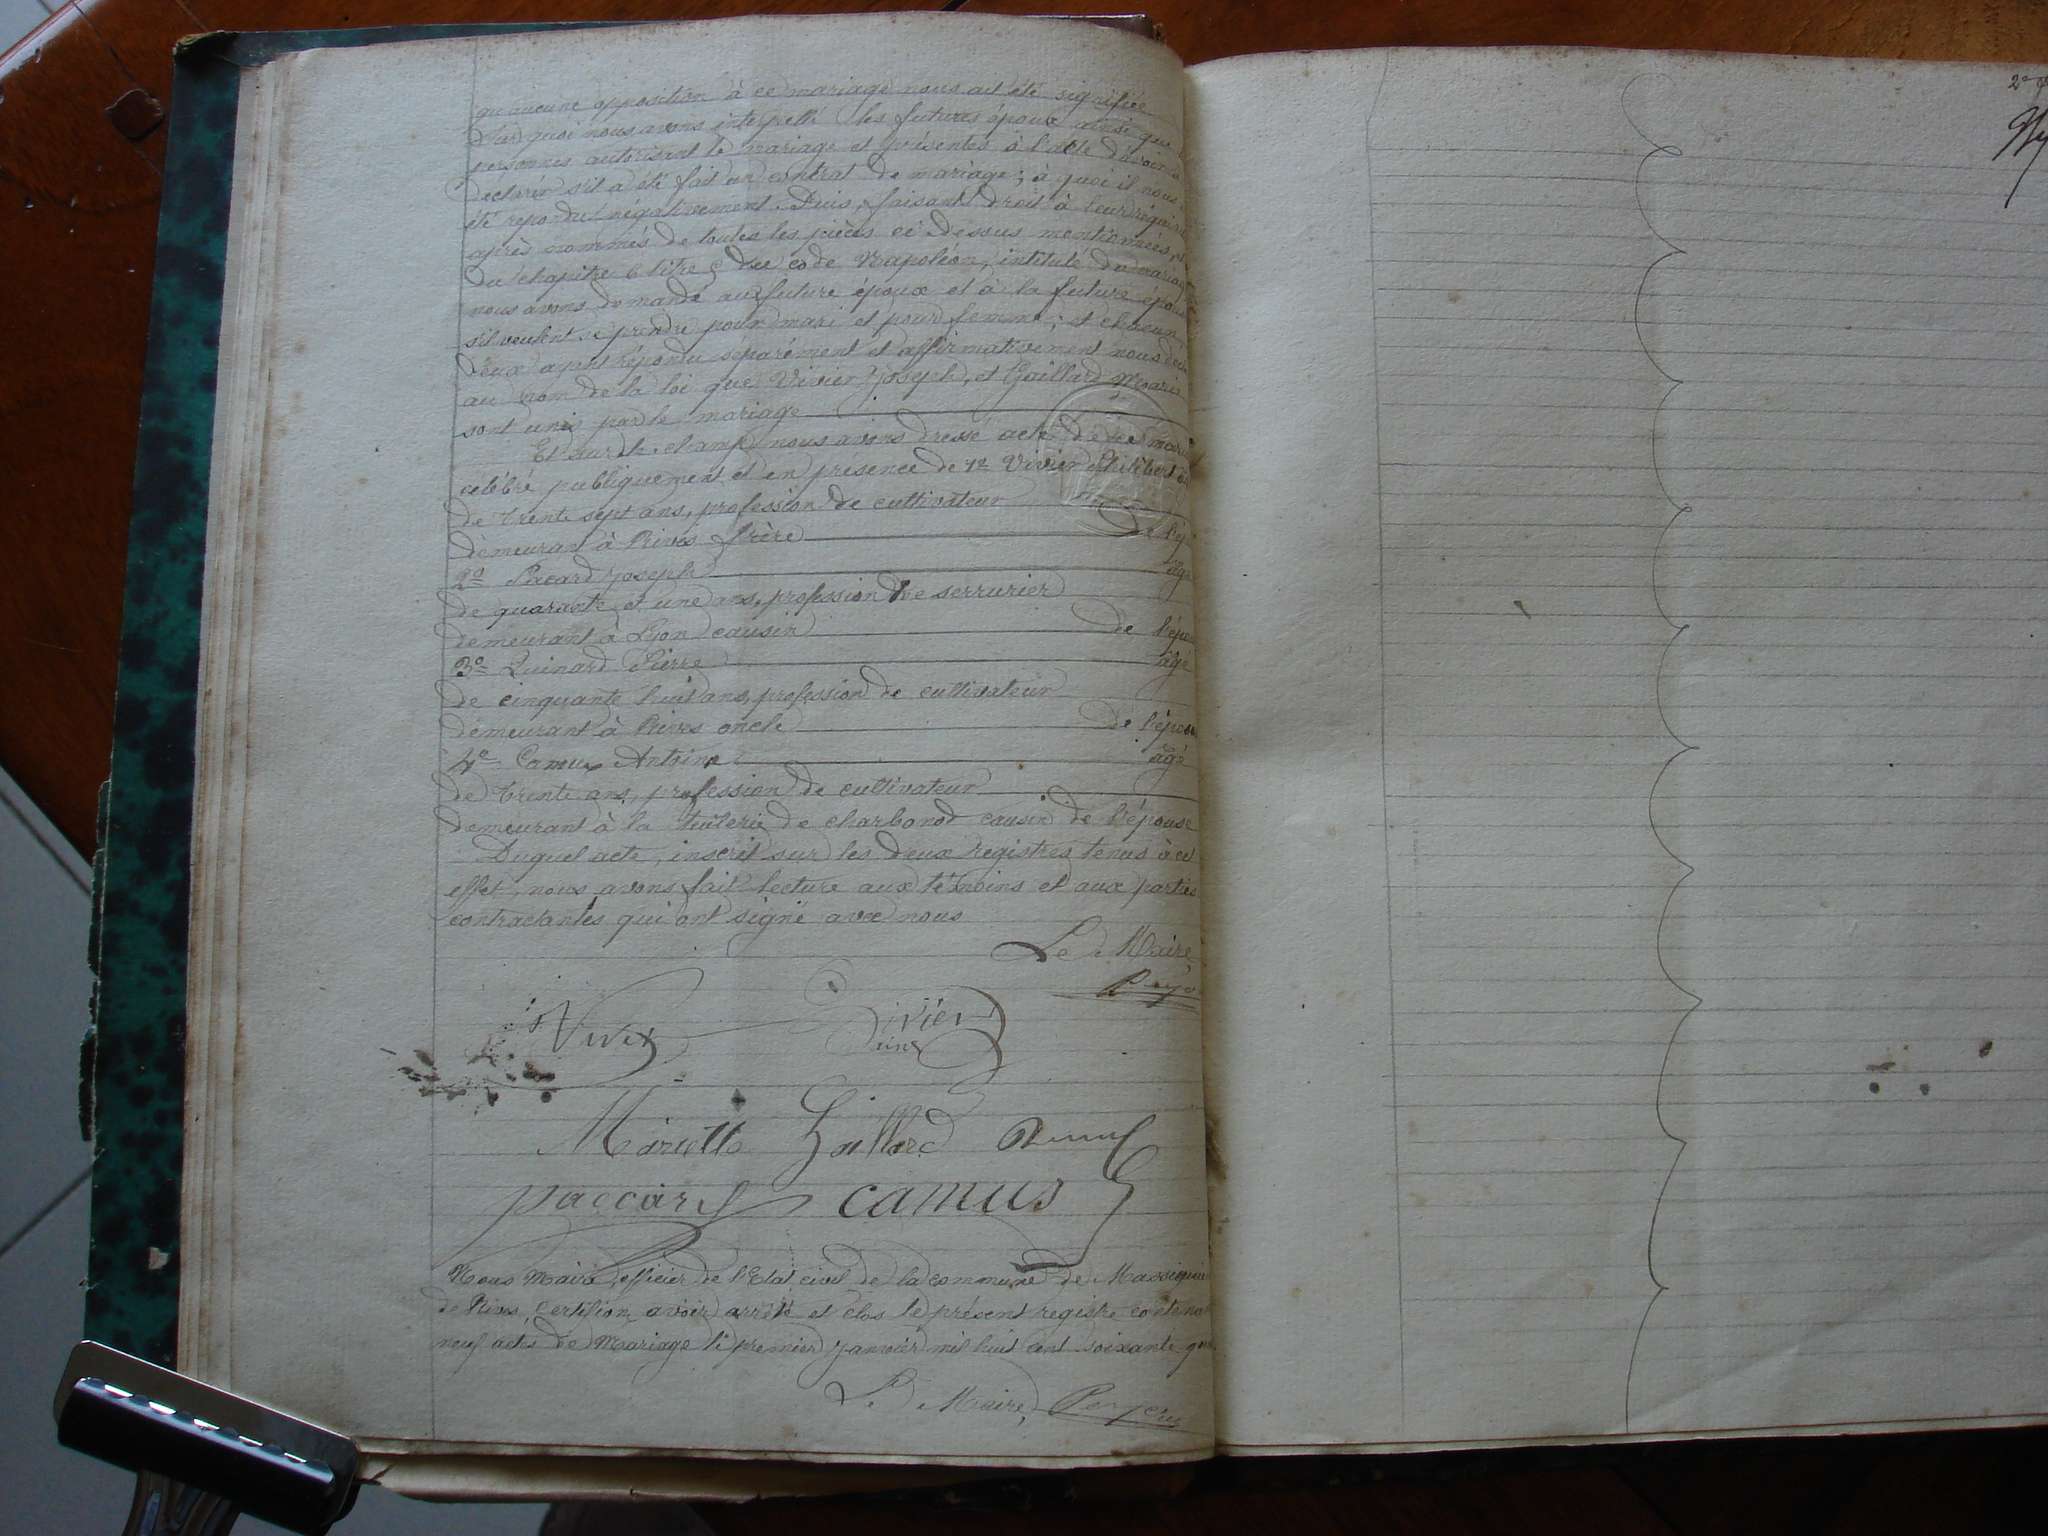 qu'aucune opposition à ce mariage nous ait été signifiée
Sur quoi nous avons interpellé les futures époux ainsi que
personnes autorisant le mariage et présentes à l'acte d'avoir à
déclarér s'il a été fait un contrat de mariage; à quoi il nous
été repondu négativement. Puis, faisant droit à leur réquis
après nommés de toutes les pièces ci dessus mentionnées,
du chapitre 6 titre du code Napoléon, intitulé du mariag
nous avons demandé au future époux et à la future épous
s'il veulent se prendre pour mari et pour femme; et chacun
d'eux ayant répondu séparément et affirmativement nous décla
au nom de la loi que Vivier Joseph, et Gaillard Marie
sont unis par le mariage
Et sur le champ nous avons dressé acte de ce maria
célébré publiquement et en présence de 1º Vivier Philibert
de trente sept ans, profession de cultivateur
demeurant à Rives frère de l'ép
2º Pacard Joseph âgé
de quarante et une ans, profession de serrurier
demeurant à Lyon causin de l'épo
3º Quinard Pierre âgé
de cinquante huit ans, profession de cultivateur
demeurant à Rives oncle de l'épous
4º Camus Antoine âgé
de trente ans, profession de cultivateur
demeurant à la tuilerie de charbonod causin de l'épouse
Duquel acte, inscrit sur les deux registres tenus à cet
effet, nous avons fait lecture aux témoins et aux parties
contractantes qui ont signé avec nous
Le Maire
Vivier
Mariette Gaillard
paccard camus
Nous Maire, officier de l'Etat civil de la commune de Massignieu
de Rives, certifion avoir arrêté et clos le présent registre contena
neuf actes de Mariage le premier Janvier mil huit cent soixante
Le Maire,